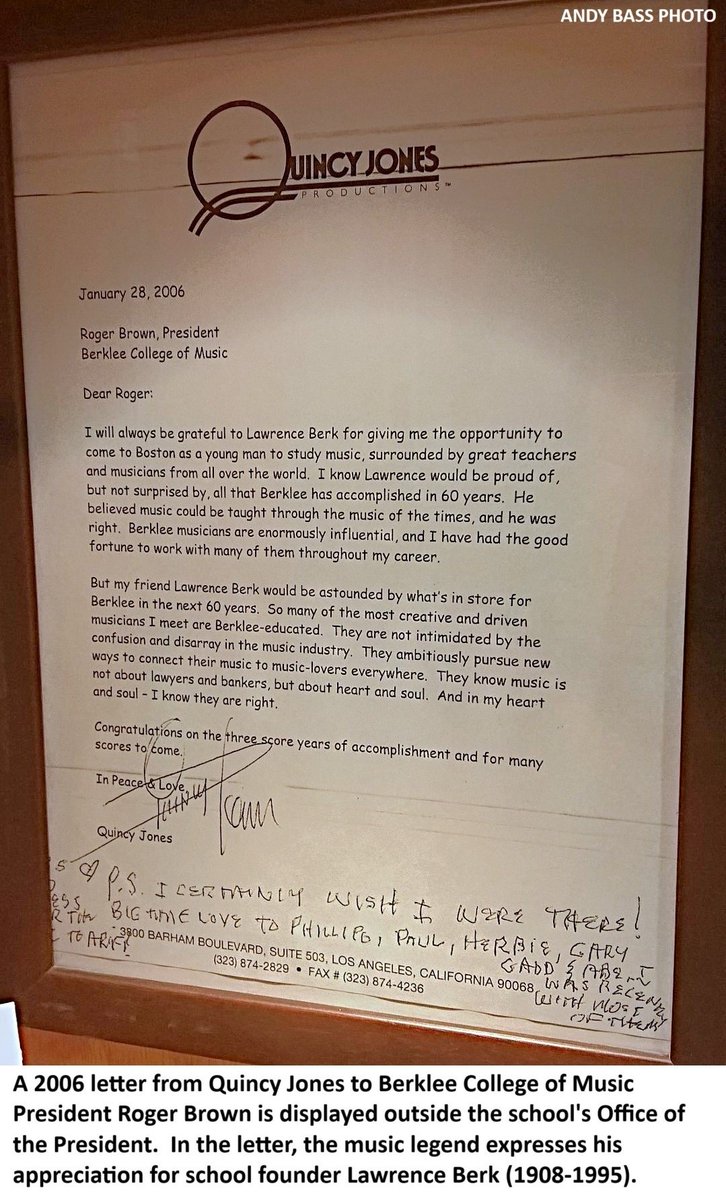 ANDY BASS PHOTO
QUINCY JONES
PRODUCTIONS™
January 28, 2006
Roger Brown, President
Berklee College of Music
Dear Roger:
I will always be grateful to Lawrence Berk for giving me the opportunity to
come to Boston as a young man to study music, surrounded by great teachers
and musicians from all over the world. I know Lawrence would be proud of,
but not surprised by, all that Berklee has accomplished in 60 years. He
believed music could be taught through the music of the times, and he was
right. Berklee musicians are enormously influential, and I have had the good
fortune to work with many of them throughout my career.
But my friend Lawrence Berk would be astounded by what's in store for
Berklee in the next 60 years. So many of the most creative and driven
musicians I meet are Berklee-educated. They are not intimidated by the
confusion and disarray in the music industry. They ambitiously pursue new
ways to connect their music to music-lovers everywhere. They know music is
not about lawyers and bankers, but about heart and soul. And in my heart
and soul – I know they are right.
Congratulations on the three score years of accomplishment and for many
scores to come.
In Peace & Love,
Quincy Jones
P.S. I CERTAINLY WISH I WERE THERE!
BIG TIME LOVE TO PHILLIPE, PAUL, HERBIE, GARY
GADD & ABE. I
WAS RECENTLY
WITH MOST
OF THEM
3800 BARHAM BOULEVARD, SUITE 503, LOS ANGELES, CALIFORNIA 90068
(323) 874-2829 • FAX # (323) 874-4236
A 2006 letter from Quincy Jones to Berklee College of Music
President Roger Brown is displayed outside the school's Office of
the President. In the letter, the music legend expresses his
appreciation for school founder Lawrence Berk (1908-1995).